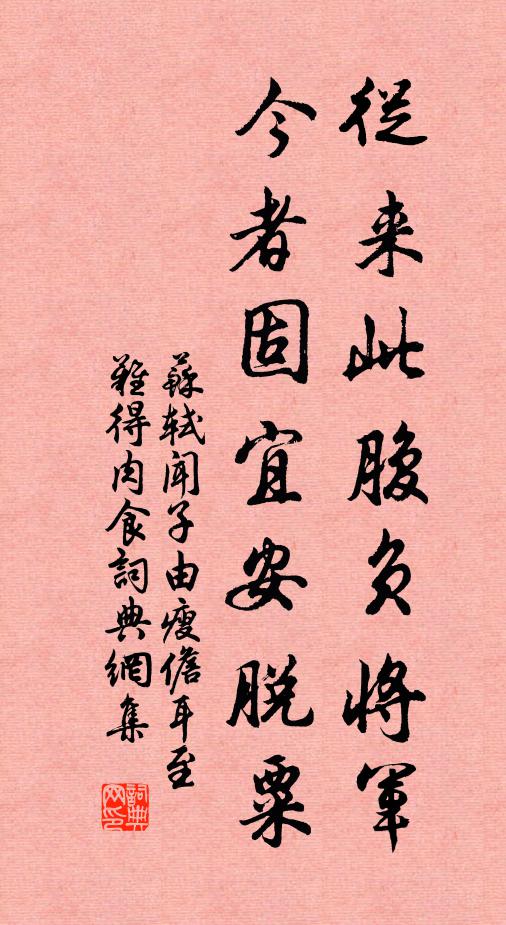 從来此腹負將軍
今者固宜安脱粟
蘇軾聞子由瘦儋耳至
難得肉食詞典網集
詞典网印